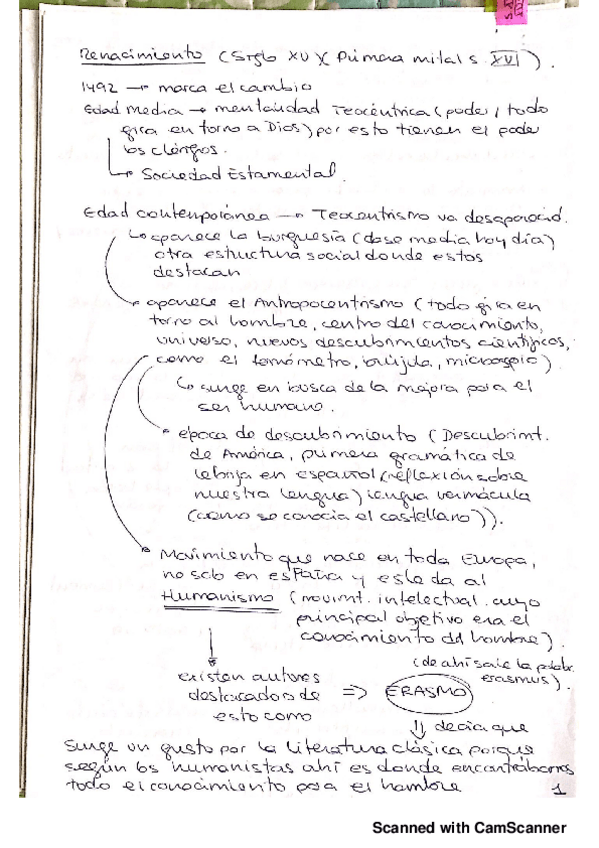 Renacimiento (Siglo XV y Primera mitad s. XVI).
1492 → marca el cambio
Edad Media → mentalidad Teocéntrica (poder, todo
gira en torno a Dios) por esto tienen el poder
los clérigos.
↳ Sociedad Estamental.
Edad contemporánea → Teocentrismo va desapareciod.
↳ aparece la burguesía (clase media hoy día)
otra estructura social donde estos
destacan
aparece el Antropocentrismo (todo gira en
torno al hombre, centro del conocimiento,
universo, nuevos descubrimientos científicos,
como el termómetro, brújula, microscopio)
↳ surge en busca de la mejora para el
ser humano.
época de descubrimiento (Descubrimt.
de América, primera gramática de
Lebrija en español (reflexión sobre
nuestra lengua) lengua vernácula
(como se conocía el castellano)).
Movimiento que nace en toda Europa,
no solo en España y este da al
Humanismo (movimt. intelectual cuyo
principal objetivo era el
conocimiento del hombre).
(de ahí sale la palabr.
erasmus).
existen autores
destacados de
esto como
⇒ ERASMO
⇓ decía que
Surge un gusto por la literatura clásica porque
según los humanistas ahí es donde encontrábamos
todo el conocimiento para el hombre
1
Scanned with CamScanner